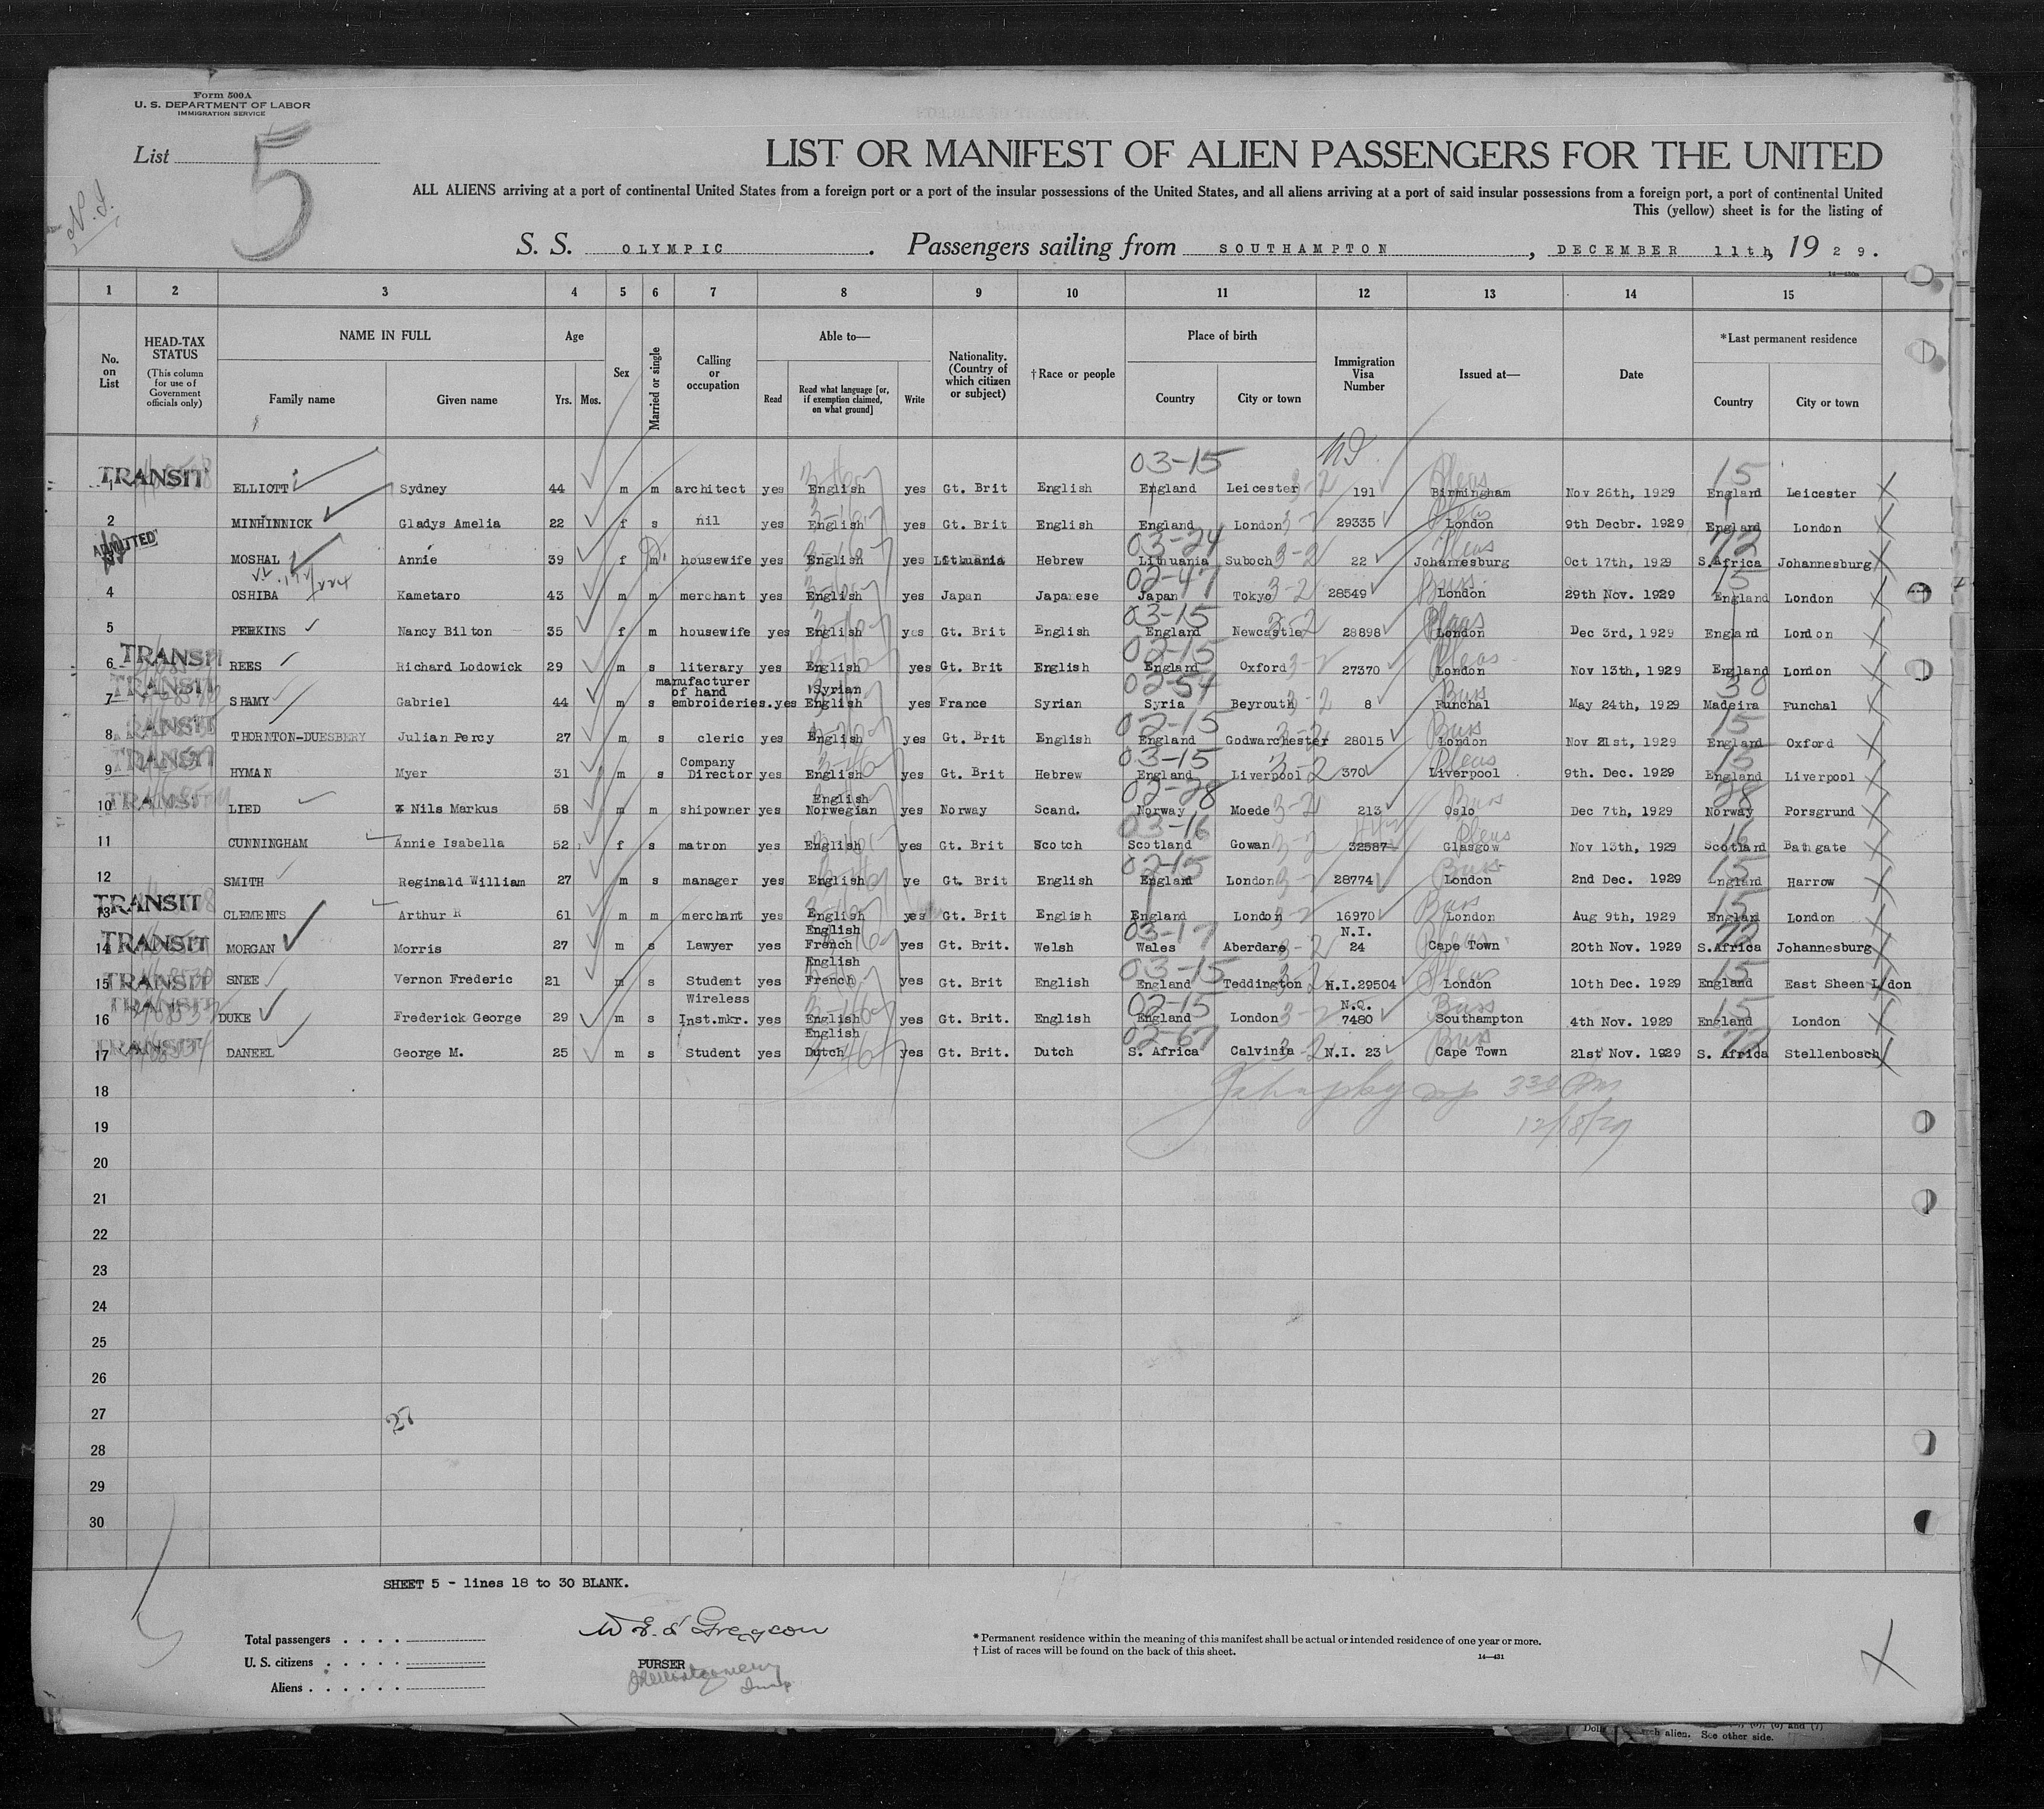 Form 500A
U. S. DEPARTMENT OF LABOR
IMMIGRATION SERVICE
List 5
N. I.
LIST OR MANIFEST OF ALIEN PASSENGERS FOR THE UNITED
ALL ALIENS arriving at a port of continental United States from a foreign port or a port of the insular possessions of the United States, and all aliens arriving at a port of said insular possessions from a foreign port, a port of continental United
This (yellow) sheet is for the listing of
S. S. OLYMPIC. Passengers sailing from SOUTHAMPTON, DECEMBER 11th, 1929.
14—430a
1 2 3 4 5 6 7 8 9 10 11 12 13 14 15
No. on List
HEAD-TAX STATUS (This column for use of Government officials only)
NAME IN FULL Family name Given name
Age Yrs. Mos.
Sex
Married or single
Calling or occupation
Able to— Read Read what language [or, if exemption claimed, on what ground] Write
Nationality. (Country of which citizen or subject)
†Race or people
Place of birth Country City or town
Immigration Visa Number
Issued at—
Date
*Last permanent residence Country City or town
03-15 15
TRANSIT 1 ELLIOTT Sydney 44 m m architect yes English yes Gt. Brit English England Leicester 3-2 191 Birmingham Nov 26th, 1929 England Leicester
2 MINHINNICK Gladys Amelia 22 f s nil yes English yes Gt. Brit English England London 3-2 29335 London 9th Decbr. 1929 England London
03-24 72
ADMITTED 3 MOSHAL Annie 39 f m housewife yes English yes Lithuania Hebrew Lithuania Suboch 3-2 22 Johannesburg Oct 17th, 1929 S.Africa Johannesburg
02-47 15
4 OSHIBA Kametaro 43 m m merchant yes English yes Japan Japanese Japan Tokyo 3-2 28549 London 29th Nov. 1929 England London
03-15
5 PERKINS Nancy Bilton 35 f m housewife yes English yes Gt. Brit English England Newcastle 3-2 28898 London Dec 3rd, 1929 England London
02-15
TRANSIT 6 REES Richard Lodowick 29 m s literary yes English yes Gt. Brit English England Oxford 3-2 27370 London Nov 13th, 1929 England London
02-54 38
TRANSIT 7 SHAMY Gabriel 44 m s manufacturer of hand embroideries. yes Syrian English yes France Syrian Syria Beyrouth 3-2 8 Funchal May 24th, 1929 Madeira Funchal
02-15 15
TRANSIT 8 THORNTON-DUESBERY Julian Percy 27 m s cleric yes English yes Gt. Brit English England Godwarchester 3-2 28015 London Nov 21st, 1929 England Oxford
03-15 15
TRANSIT 9 HYMAN Myer 31 m s Company Director yes English yes Gt. Brit Hebrew England Liverpool 3-2 370 Liverpool 9th. Dec. 1929 England Liverpool
02-28 28
TRANSIT 10 LIED Nils Markus 58 m m shipowner yes English Norwegian yes Norway Scand. Norway Moede 3-2 213 Oslo Dec 7th, 1929 Norway Porsgrund
03-16 16
11 CUNNINGHAM Annie Isabella 52 f s matron yes English yes Gt. Brit Scotch Scotland Gowan 3-2 32587 Glasgow Nov 13th, 1929 Scotland Bathgate
02-15 15
12 SMITH Reginald William 27 m s manager yes English ye Gt. Brit English England London 3-2 28774 London 2nd Dec. 1929 England Harrow
15
TRANSIT 13 CLEMENTS Arthur R 61 m m merchant yes English yes Gt. Brit English England London 3-2 16970 London Aug 9th, 1929 England London
03-17 72
TRANSIT 14 MORGAN Morris 27 m s Lawyer yes English French yes Gt. Brit. Welsh Wales Aberdare 3-2 N.I. 24 Cape Town 20th Nov. 1929 S.Africa Johannesburg
03-15 15
TRANSIT 15 SNEE Vernon Frederic 21 m s Student yes English French yes Gt. Brit English England Teddington 3-2 N.I.29504 London 10th Dec. 1929 England East Sheen L/don
02-15 15
TRANSIT 16 DUKE Frederick George 29 m s Wireless Inst.mkr. yes English yes Gt. Brit. English England London 3-2 N.Q. 7480 Southampton 4th Nov. 1929 England London
02-67 72
TRANSIT 17 DANEEL George M. 25 m s Student yes English Dutch yes Gt. Brit. Dutch S. Africa Calvinia 3-2 N.I. 23 Cape Town 21st Nov. 1929 S. Africa Stellenbosch
18
19
12/18/29
20
21
22
23
24
25
26
27
27
28
29
30
SHEET 5 - lines 18 to 30 BLANK.
Total passengers
U. S. citizens
Aliens
PURSER
* Permanent residence within the meaning of this manifest shall be actual or intended residence of one year or more.
† List of races will be found on the back of this sheet.
14—431
alien. See other side.